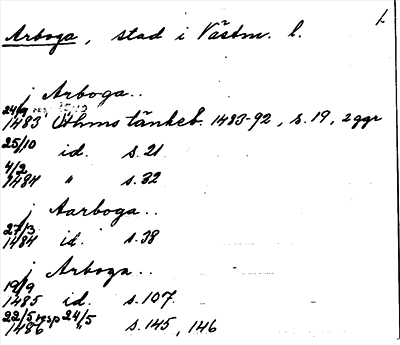 1.
Arboga, stad i Västm. l.
j Arboga..
24/9
1483 Sthms tänkeb. 1483-92, s.19, 2 ggr
25/10 id. s.21
4/2
1484 " s.32
j Aarboga..
27/3
1484 id. s.38
j Arboga..
19/9
1485 id. s.107.
22/5 resp 24/5
1486 " s.145, 146